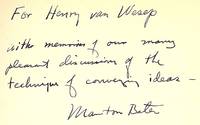 For Henry van Wesep
with memories of our many
pleasant discussions of the
technique of conveying ideas —
Manton Bates